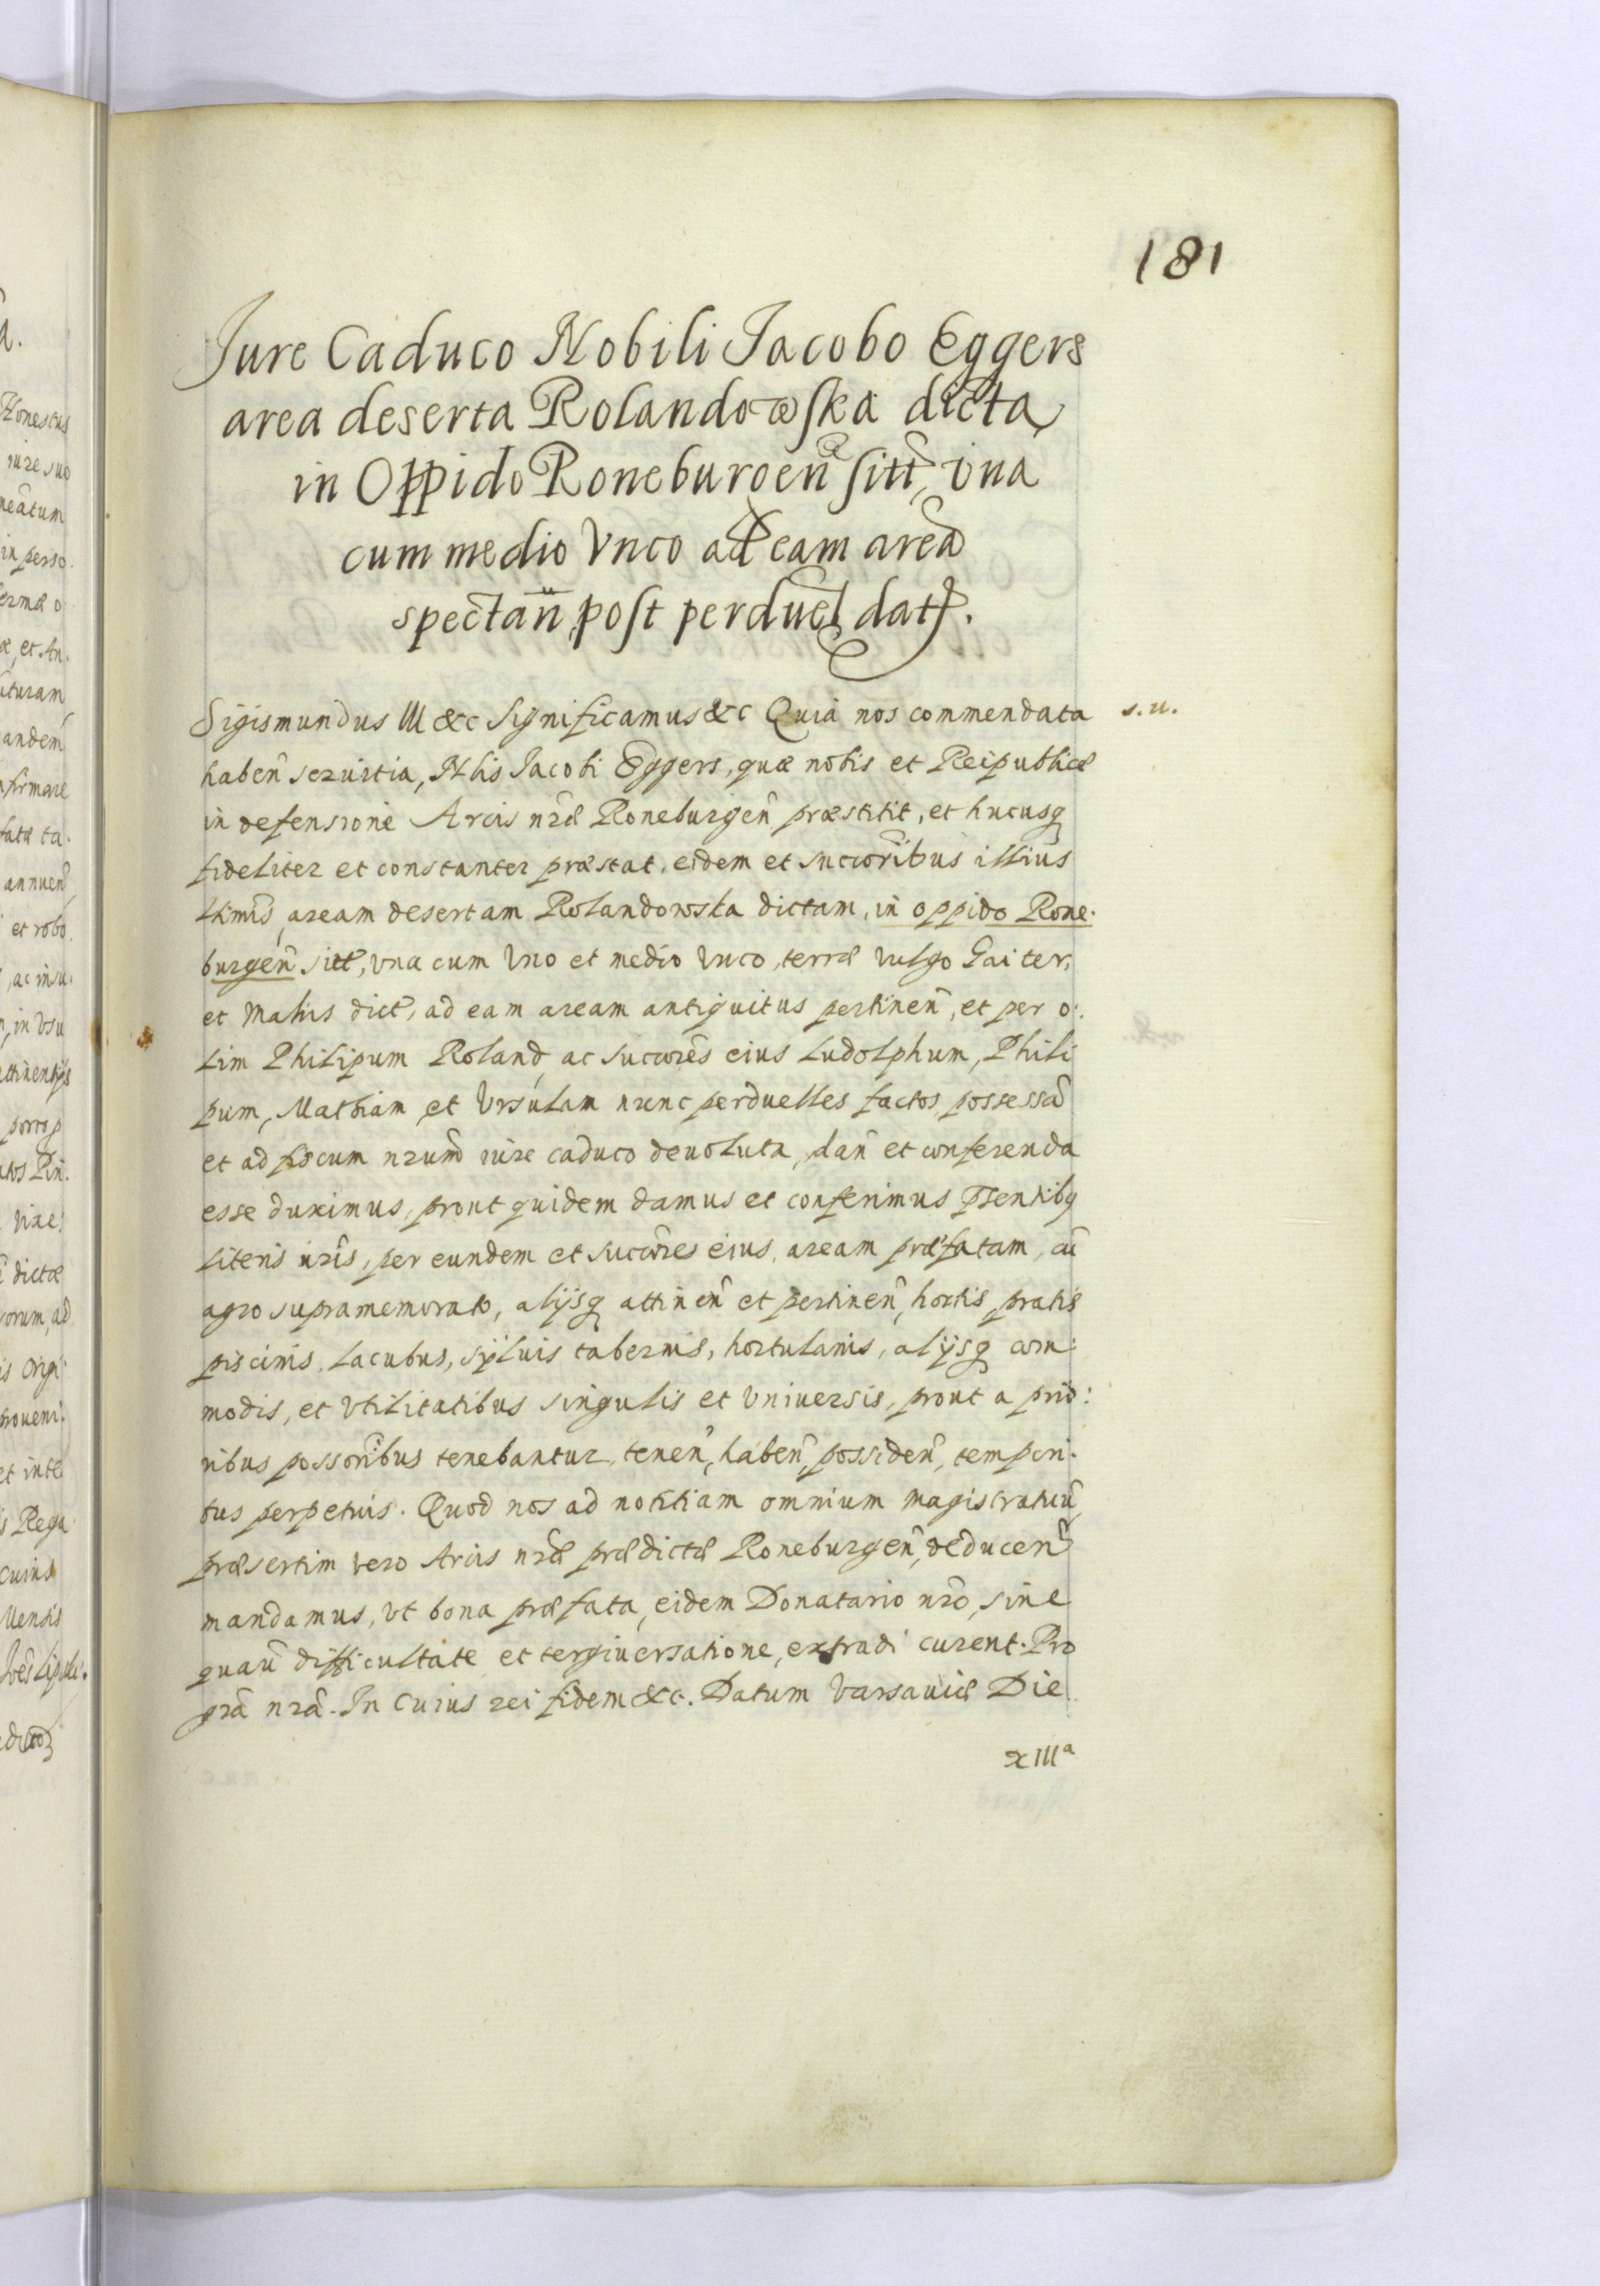 181
Jure Caduco Nobili Jacobo Eggers
area deserta Rolandowska dicta
in Oppido Roneburgen̄ sitt, vna
cum medio Vnco ad eam areā
spectan̄, post perduel datj.
Sigismundus III &c Significamus &c Quia nos commendata s. u.
haben̄ seruitia, Nblis Jacobi Eggers, quæ nobis et Reipublicæ
in defensione Arcis nr̄æ Roneburgen̄ præstitit, et hucusq
fideliter et constanter præstat, eidem et succoribus illius
ltimis, aream desertam Rolandowska dictam, in oppido Rone-
burgen̄ sitt, vna cum vno et medio vnco, terræ vulgo Gaiter,
et Mahis dict, ad eam aream antiquitus pertinen̄, et per o-
lim Philipum Roland, ac succores eius Ludolphum, Phili
pum, Mathiam et Vrsulam nunc perduelles factos possessā
et ad fiscum nr̄um iure caduco deuoluta, dan̄ et conferenda
esse duximus, prout quidem damus et conferimus p̄sentibq
literis nr̄is, per eundem et succores eius, aream præfatam, cū
agro supramemorato, alijsq attinen̄ et pertinen̄, hortis, pratis
piscinis, lacubus, syluis tabernis, hortulanis, alijsq com-
modis, et vtilitatibus singulis et vniuersis, prout a prio-
ribus possoribus tenebantur, tenen̄, haben̄, possiden̄, tempori-
bus perpetuis. Quod nos ad notitiam omnium magistratuū,
præsertim vero Arcis nr̄æ prædictæ Roneburgen̄, deducen̄
mandamus, vt bona præfata, eidem Donatario nr̄o, sine
quauī difficultate et tergiuersatione, extradi curent. Pro
gr̄a nr̄a. In cuius rei fidem &c. Datum Varsauiæ Die
XIIIa